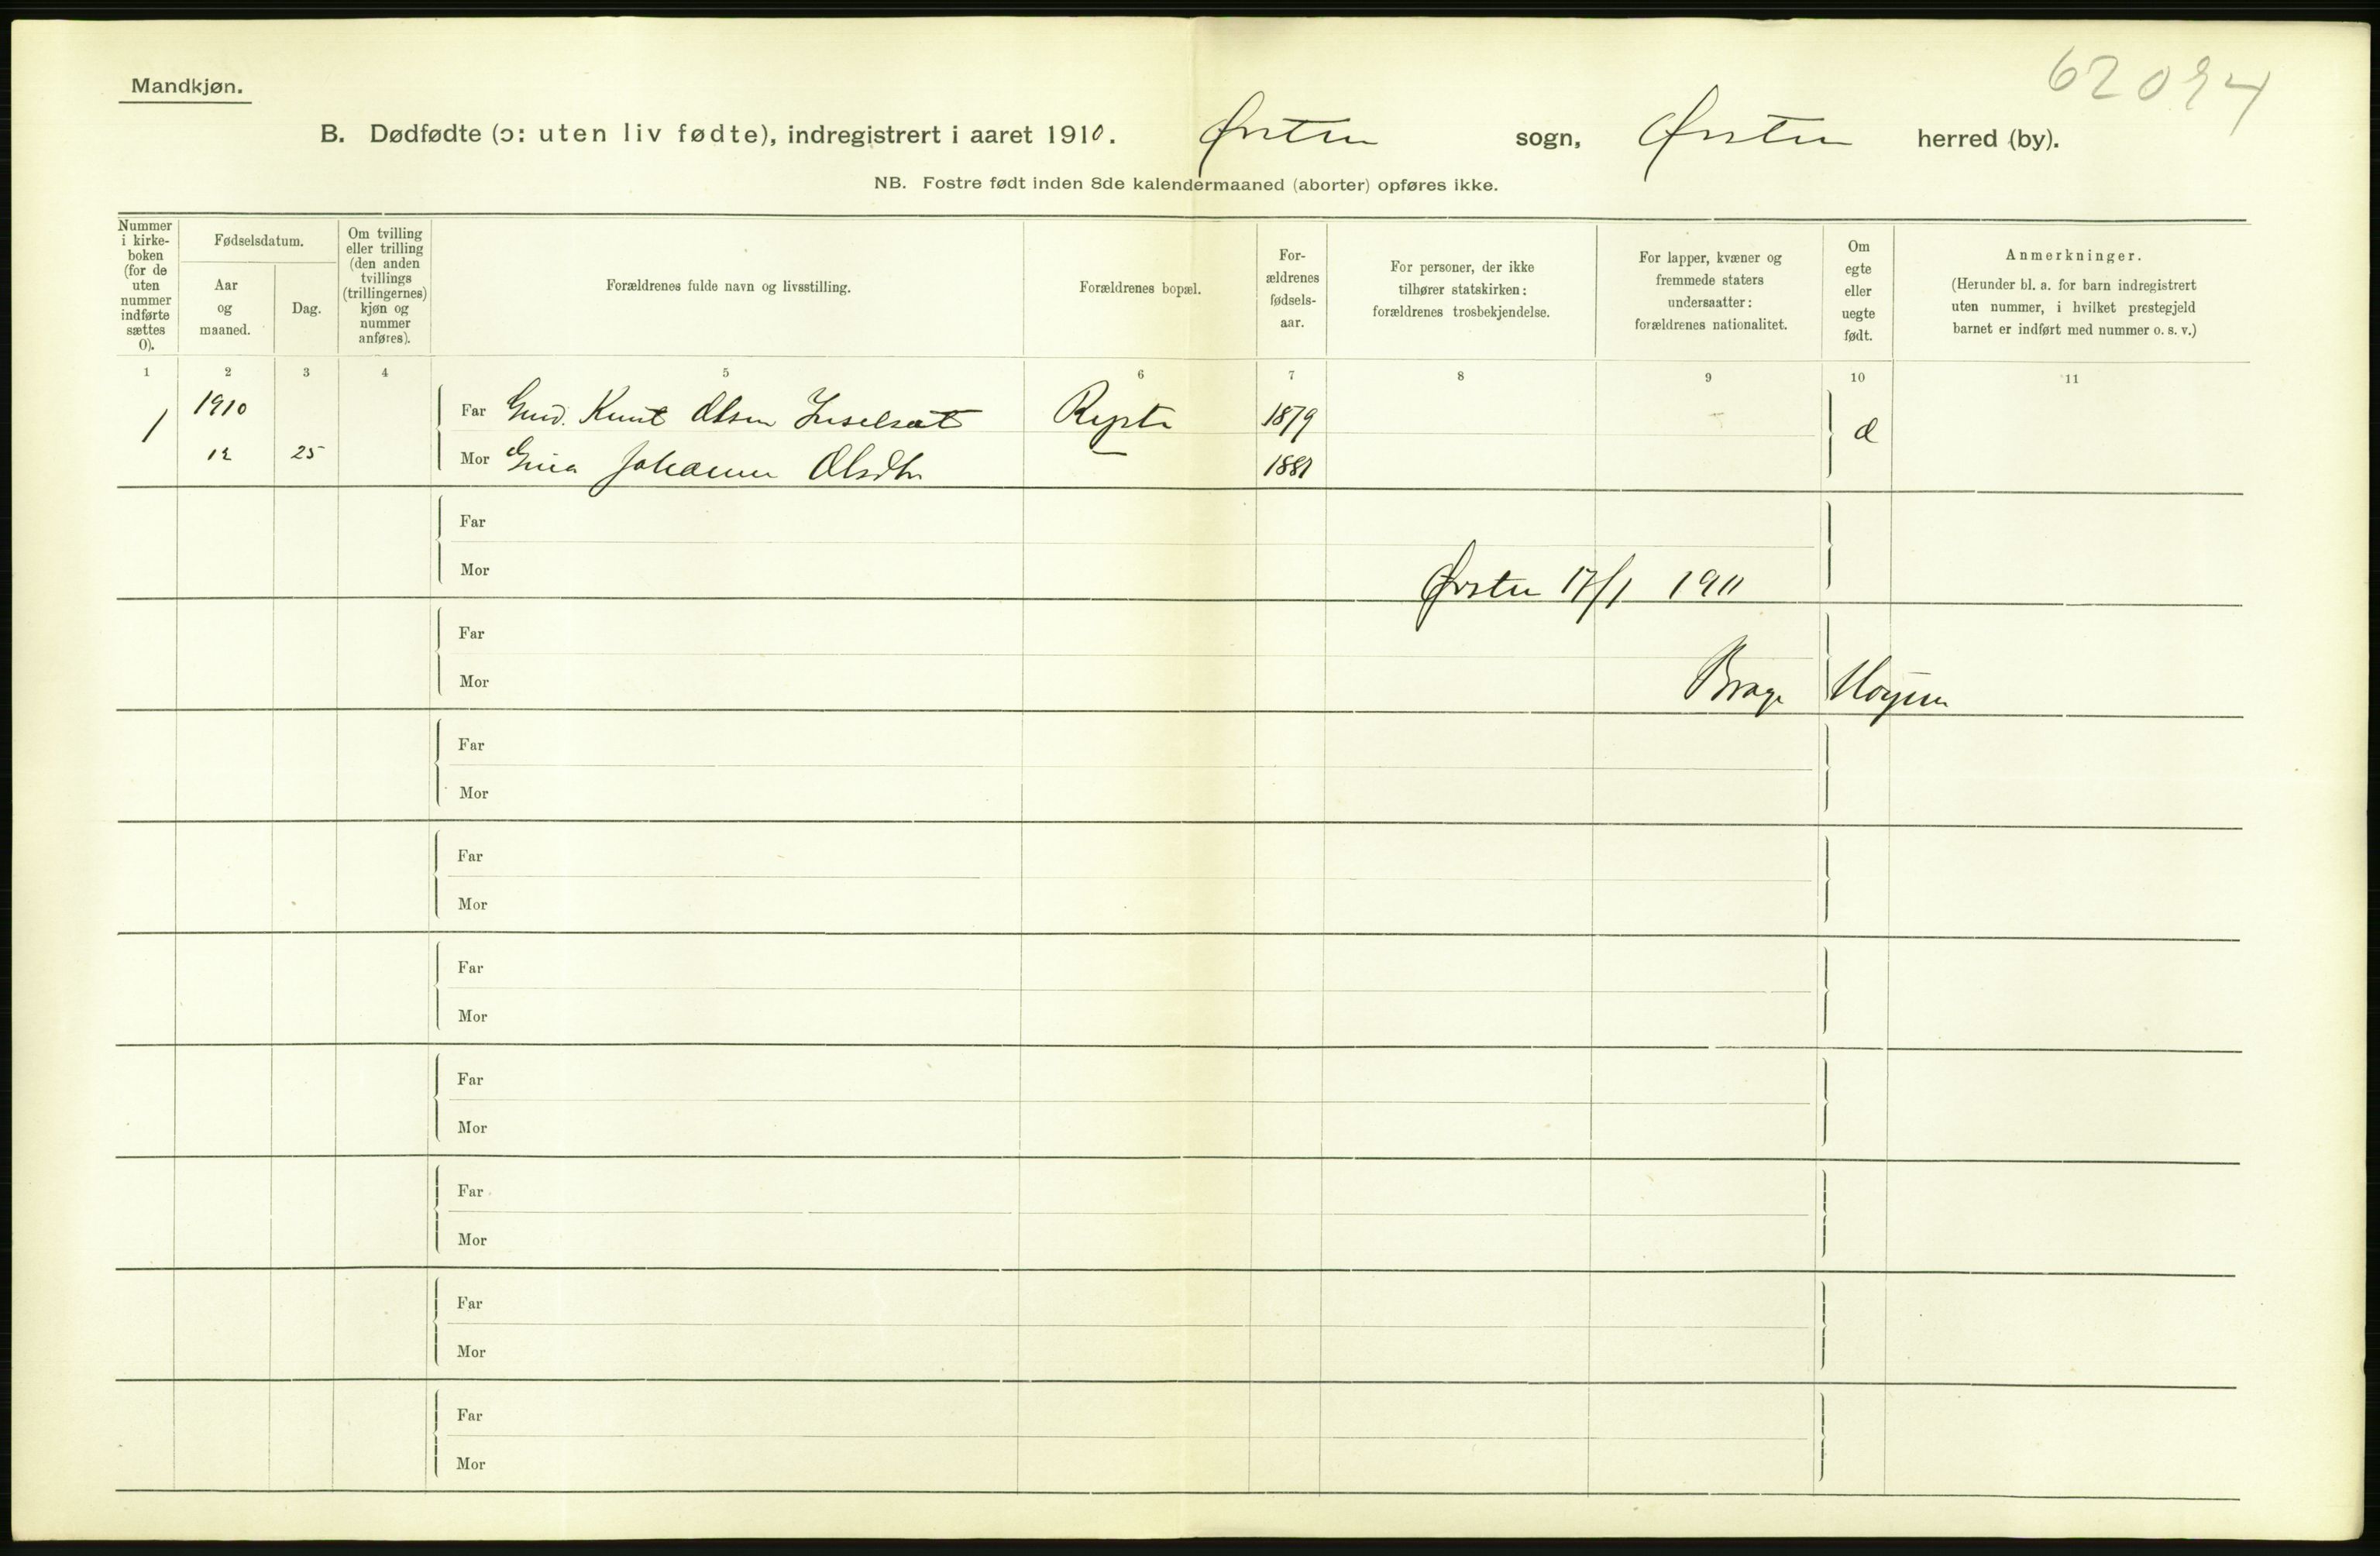 62094
Mandkjøn.
B. Dødfødte (ɔ: uten liv fødte), indregistrert i aaret 1910. Ørsten sogn, Ørsten herred (by).
NB. Fostre født inden 8de kalendermaaned (aborter) opføres ikke.
Nummer
i kirke-
boken
(for de
uten
nummer
indførte
sættes
0).
Fødselsdatum.
Aar
og
maaned.
Dag.
Om tvilling
eller trilling
(den anden
tvillings
(trillingernes)
kjøn og
nummer
anføres).
Forældrenes fulde navn og livsstilling.
Forældrenes bopæl.
For-
ældrenes
fødsels-
aar.
For personer, der ikke
tilhører statskirken:
forældrenes trosbekjendelse.
For lapper, kvæner og
fremmede staters
undersaatter:
forældrenes nationalitet.
Om
egte
eller
uegte
født.
Anmerkninger.
(Herunder bl. a. for barn indregistrert
uten nummer, i hvilket prestegjeld
barnet er indført med nummer o. s. v.)
1 2 3 4 5 6 7 8 9 10 11
1 1910 Far Knut Olsen 1879
12 25 Mor Gina Johanne Olsdtr 1881
Far
Mor
Ørsten 17/1 1911
Far
Mor
Brage Høyem
Far
Mor
Far
Mor
Far
Mor
Far
Mor
Far
Mor
Far
Mor
Far
Mor